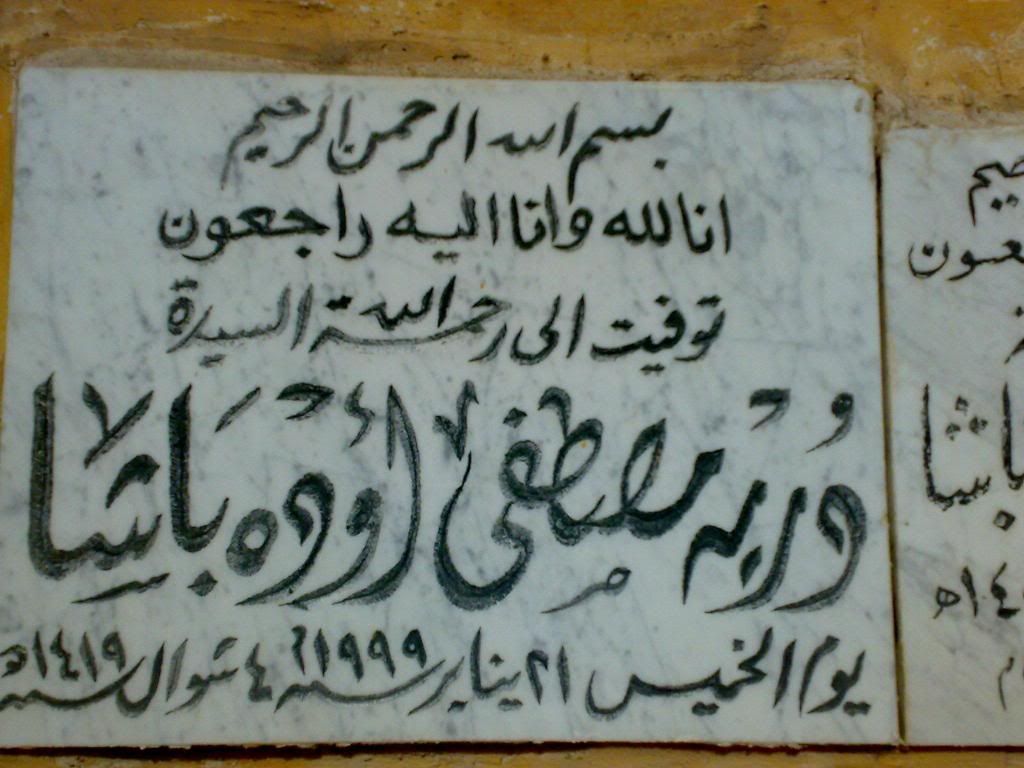 بسم الله الرحمن الرحيم
انا لله وانا اليه راجعون
توفيت الى رحمة الله السيدة
دُريه مصطفى أوده باشا
يوم الخميس ٢١ يناير سنة ١٩٩٩م ٤ شوال سنة ١٤١٩ه
يم
عون
باشا
ه